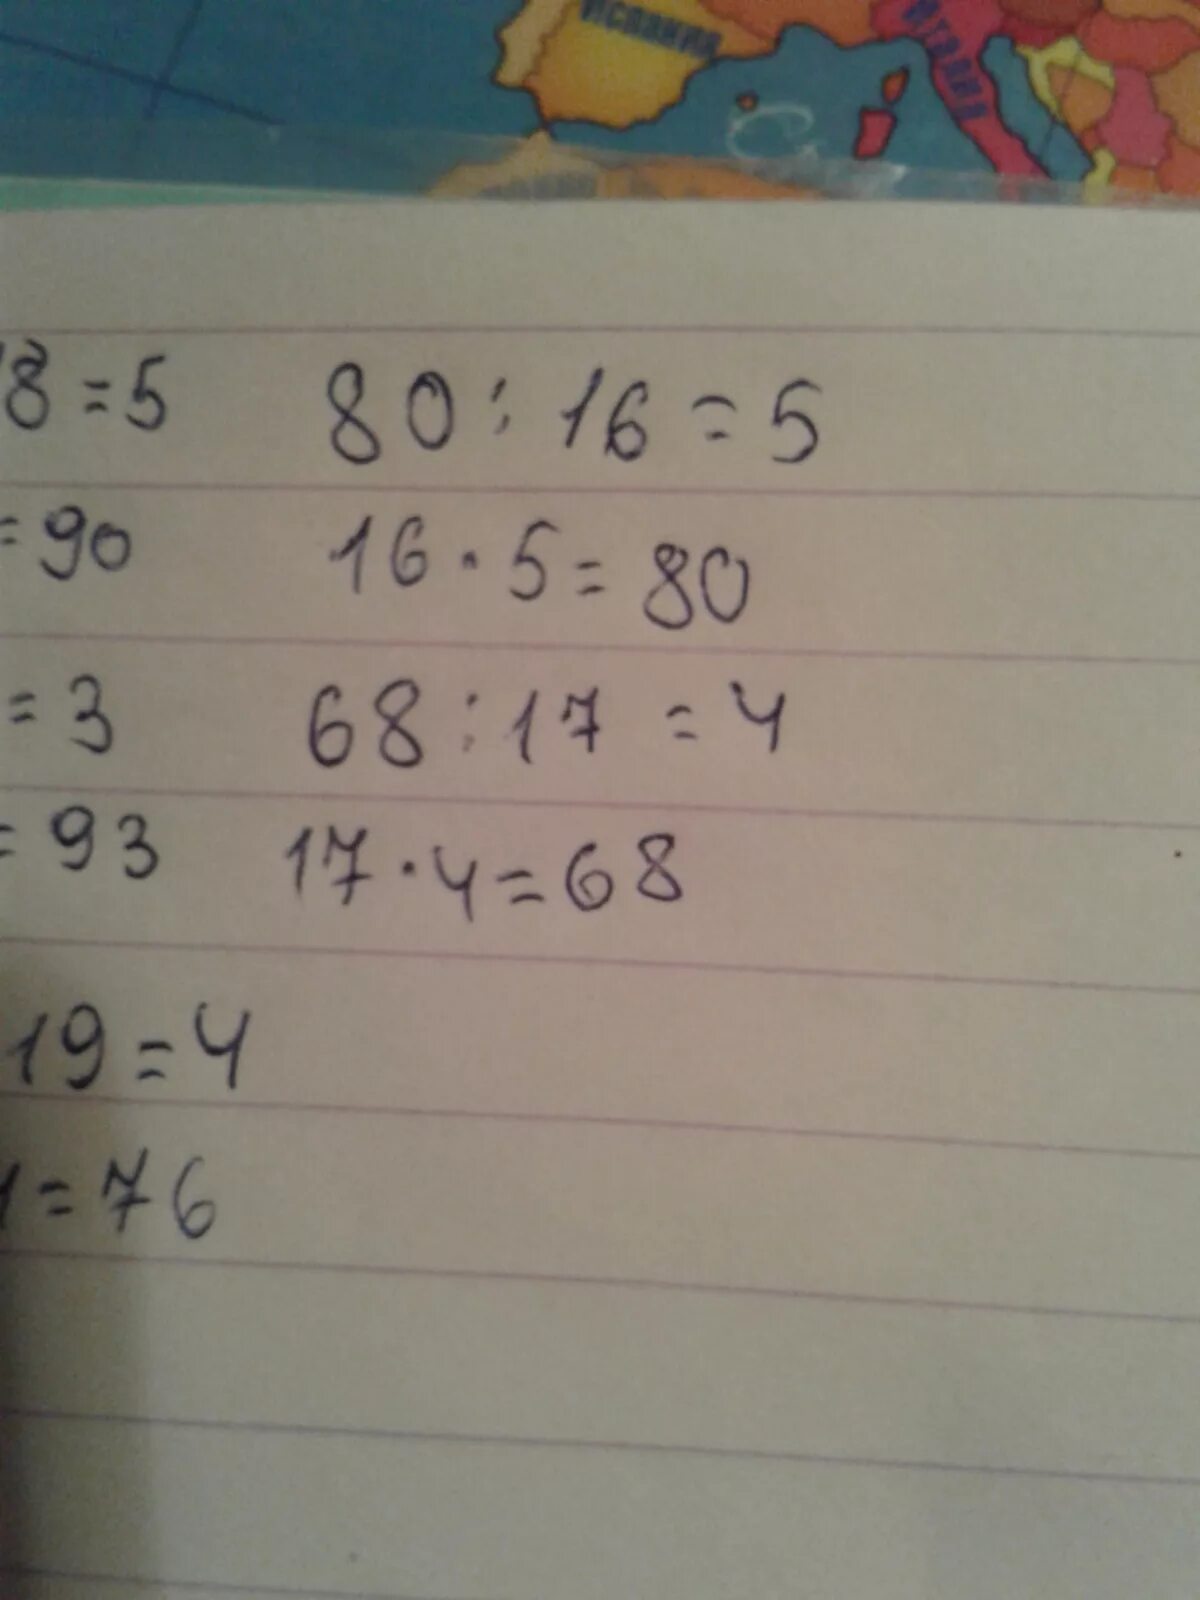 Испания Италия
18=5 80:16=5
=90 16·5=80
=3 68:17=4
=93 17·4=68
19=4
4=76